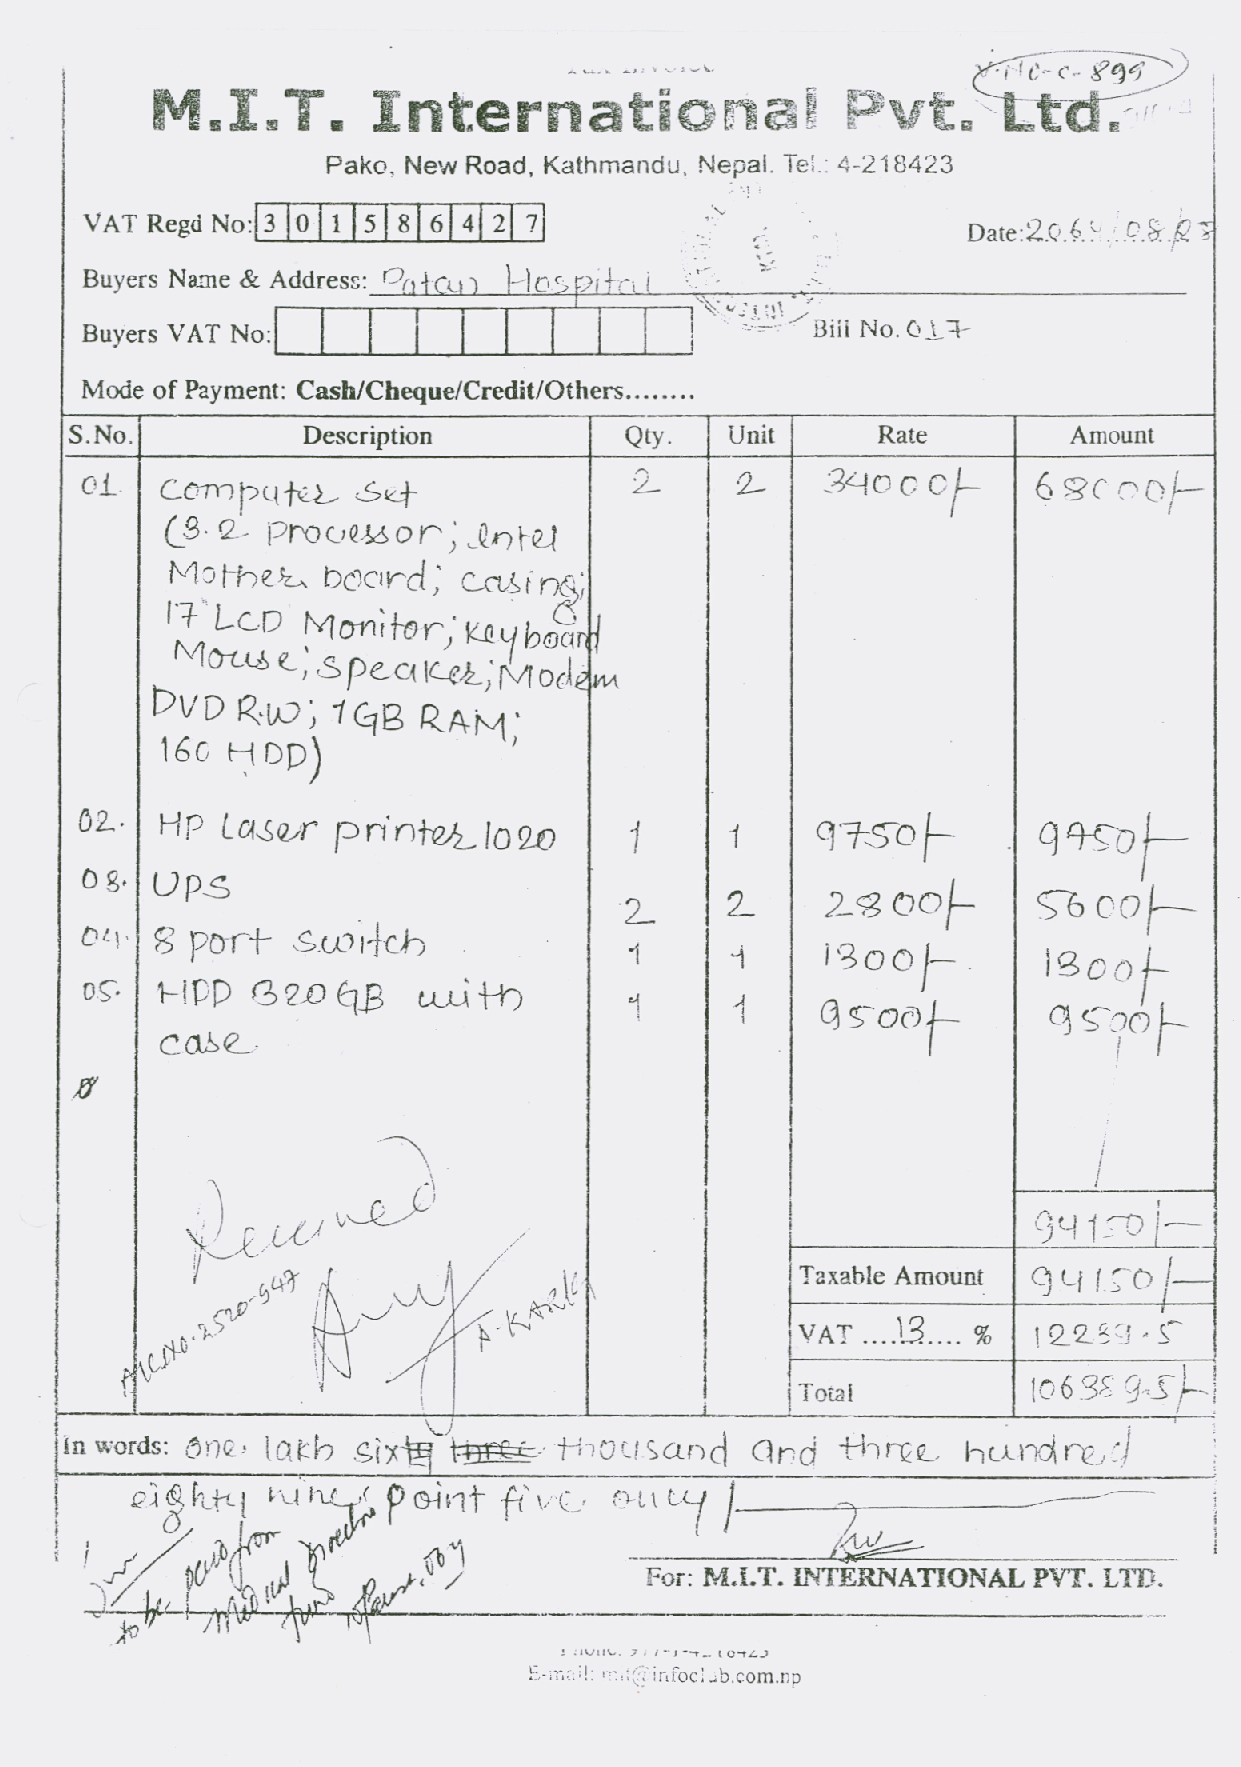 Tax Invoice
V.No-C-899
M.I.T. International Pvt. Ltd.
Pako, New Road, Kathmandu, Nepal. Tel.: 4-218423
VAT Regd No: 3 0 1 5 8 6 4 2 7
Date: 2064/08/23
Buyers Name & Address: Patan Hospital
Buyers VAT No:
Bill No. 017
Mode of Payment: Cash/Cheque/Credit/Others........
S.No. Description Qty. Unit Rate Amount
01. Computer Set 2 2 34000/- 68000/-
(3.2 processor; Intel
Mother board; casing;
17" LCD Monitor; Keyboard
Mouse; speaker; Modem
DVD R.W; 1GB RAM;
160 HDD)
02. HP Laser printer 1020 1 1 9750/- 9750/-
03. UPS 2 2 2800/- 5600/-
04. 8 port switch 1 1 1300/- 1300/-
05. HDD 320GB with 1 1 9500/- 9500/-
case
94150/-
Received
Taxable Amount 94150/-
A/C.No. 2520-947
A. KARKI
VAT ....13..... % 12239.5
Total 106389.5/-
In words: one lakh six thousand and three hundred
eighty nine point five only/-
to be paid from
Medical Director
fund
For: M.I.T. INTERNATIONAL PVT. LTD.
Phone: 977-1-4218423
E-mail: mit@infoclub.com.np